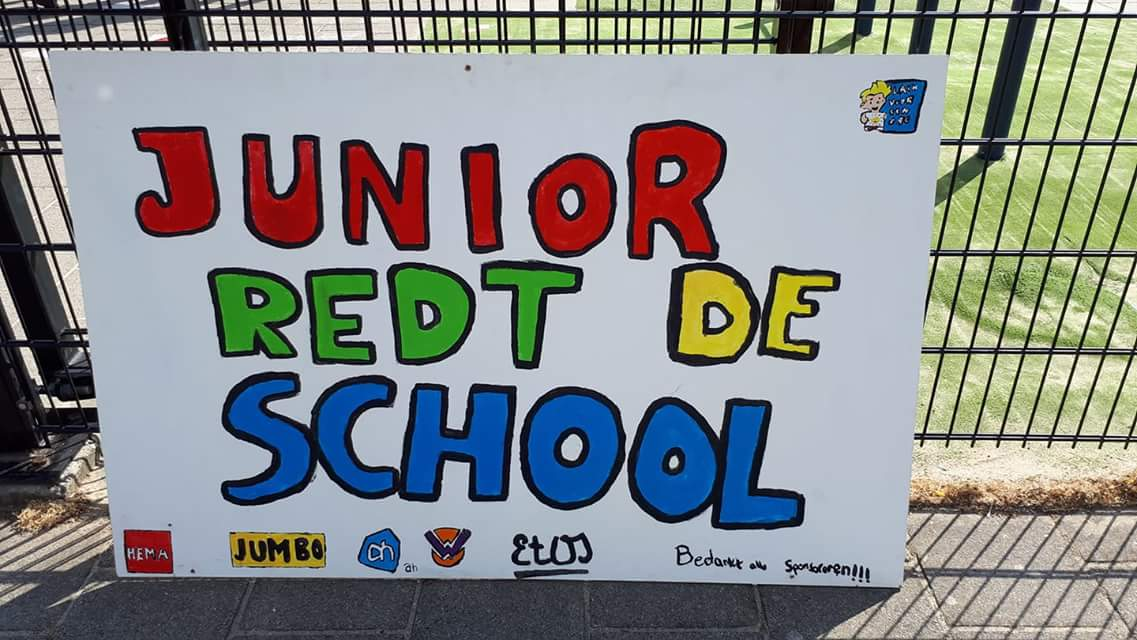 JUNIOR
REDT DE
SCHOOL
HEMA JUMBO ah ah W EtOS Bedankt alle Sponsoren!!!